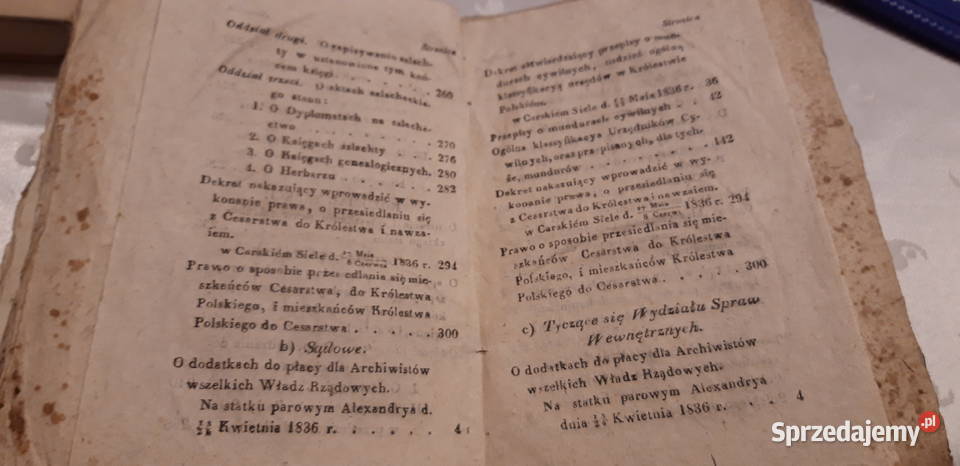 Stronica
Oddział drugi. O zapisywaniu szlach-
ty w ustanowione tym koń-
cem księgi . . . . . . 260
Oddział trzeci. O aktach szlacheckie-
go stanu:
1. O Dyplomatach na szlache-
ctwo . . . . . . 270
2. O Księgach szlachty . . . 276
3. O Księgach genealogicznych. 280
4. O Herbarzu . . . . . 282
Dekret nakazujący wprowadzić w wy-
konanie prawa, o przesiedlaniu się
z Cesarstwa do Królestwa i nawza-
iem.
w Carskiém Siele d. 27 Maia / 8 Czerwca 1836 r. 294
Prawo o sposobie przesiedlania się mie-
szkeńców Cesarstwa, do Królestwa
Polskiego, i mieszkańców Królestwa
Polskiego do Cesarstwa . . . . . 300
b) Sądowe.
O dodatkach do płacy dla Archiwistów
wszelkich Władz Rządowych.
Na statku parowym Alexandrya d.
Kwietnia 1836 r. . . . . . 4
Stronica
Dekret zatwierdzający przepisy o mun-
durach cywilnych, tudzież ogólną
klassyfikacyą urzędów w Królestwie
Polskiém.
w Carskiém Siele d. Maia 1836 r. 36
Przepisy o mundurach cywilnych . . 42
Ogólna klassyfikacya Urzędników Cy-
wilnych, oraz przepisanych, dla tych-
że, mundurów . . . . . . 142
Dekret nakazujący wprowadzić w wy-
konanie prawa, o przesiedlaniu się
z Cesarstwa do Królestwa i nawzaiem.
w Carskiém Siele d. 27 Maia / 8 Czerw. 1836 r. 294
Prawo o sposobie przesiedlania się mie-
szkańców Cesarstwa do Królestwa
Polskiego, i mieszkańców Królestwa
Polskiego do Cesarstwa . . . . . 300
c) Tyczące się Wydziału Spraw
Wewnętrznych.
O dodatkach do płacy dla Archiwistów
wszelkich Władz Rządowych.
Na statku parowym Alexandrya
dnia Kwietnia 1836 r. . . . . 4
Sprzedajemy.pl